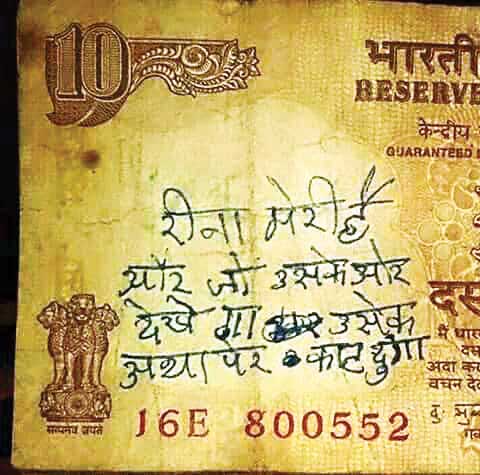 10
भारती
RESERVE
केन्द्रीय
GUARANTEED
रीना मेरी है
और जो उसके ओर
देखे गा उसेक
अथा पेर काट दुगा
दस
मैं धार
अदा क
वचन दे
सत्यमेव जयते
16E 800552